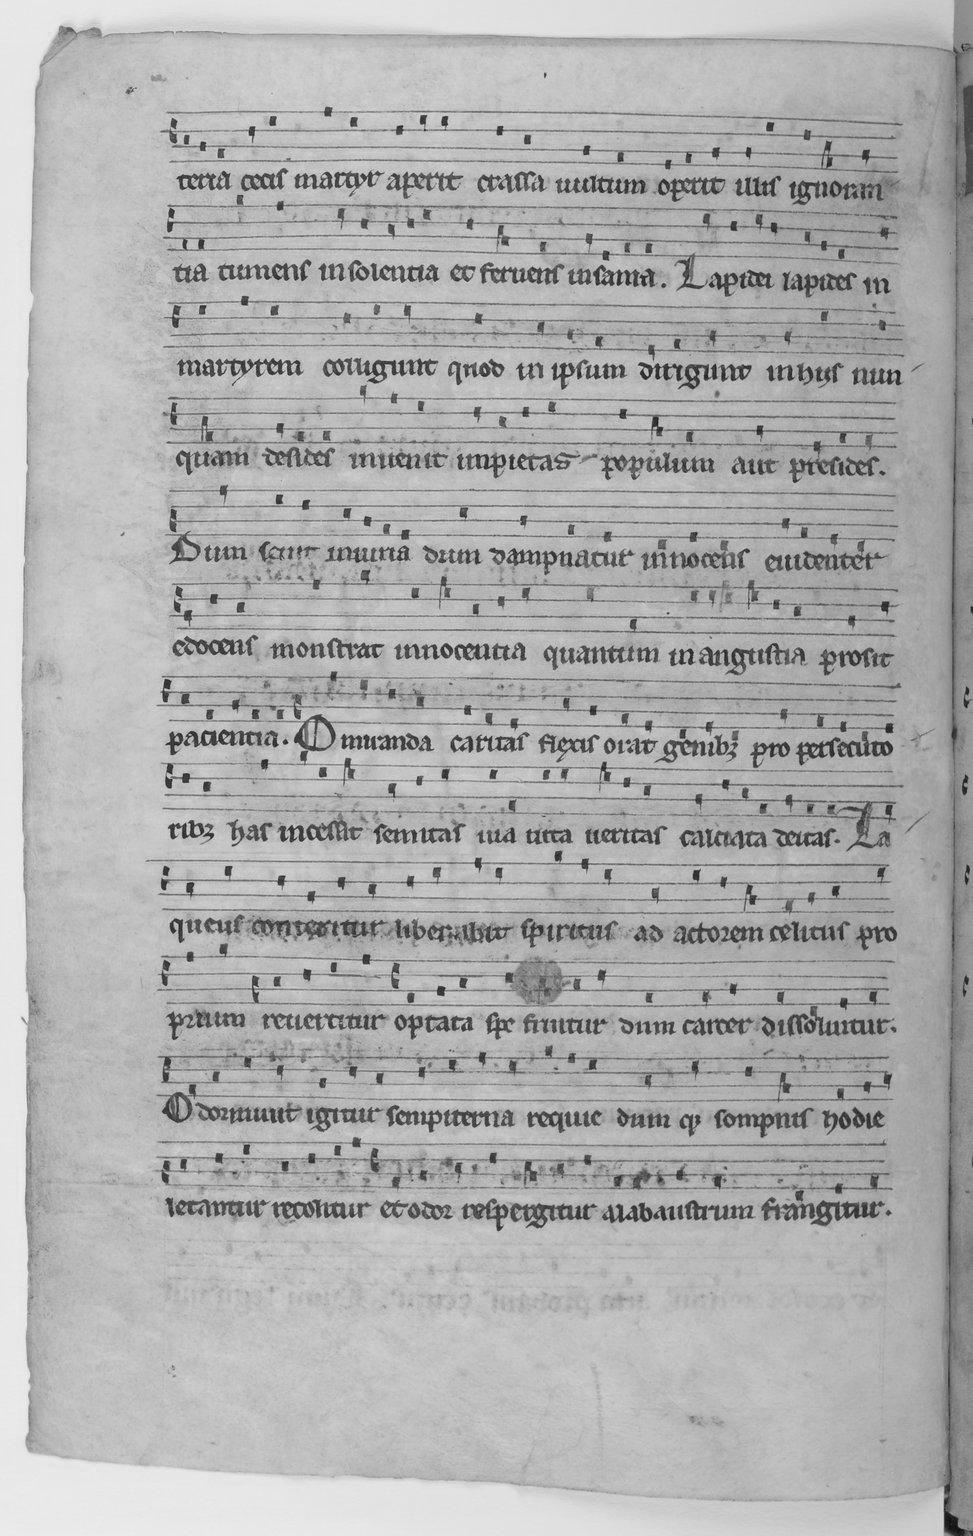 teria cecis martyr aperit crassa uultum operit illis ignoran
tia tumens insolentia et feruens insania. Lapidei lapides in
martyrem corrigunt quod in ipsum dirigunt in hys nun
quam desides inuenit impietas populum aut presides.
Dum sciit iniuria drum dampnatur innocens euidenter
edocens monstrat innocentia quantum in angustia prosit
paciencia. O miranda caritas flexis orat genibꝫ pro persecuto
ribꝫ has incessit semitas uia uita ueritas calciata deitas. La
queus conteritur liberabit spiritus ad actorem celitus pro
prium reuertitur optata spe fruitur dum carcer dissoluitur.
Odormiuit igitur sempiterna requie dum qꝫ sompnis hodie
letantur recolitur et odor respergitur alabaustrum frangitur.